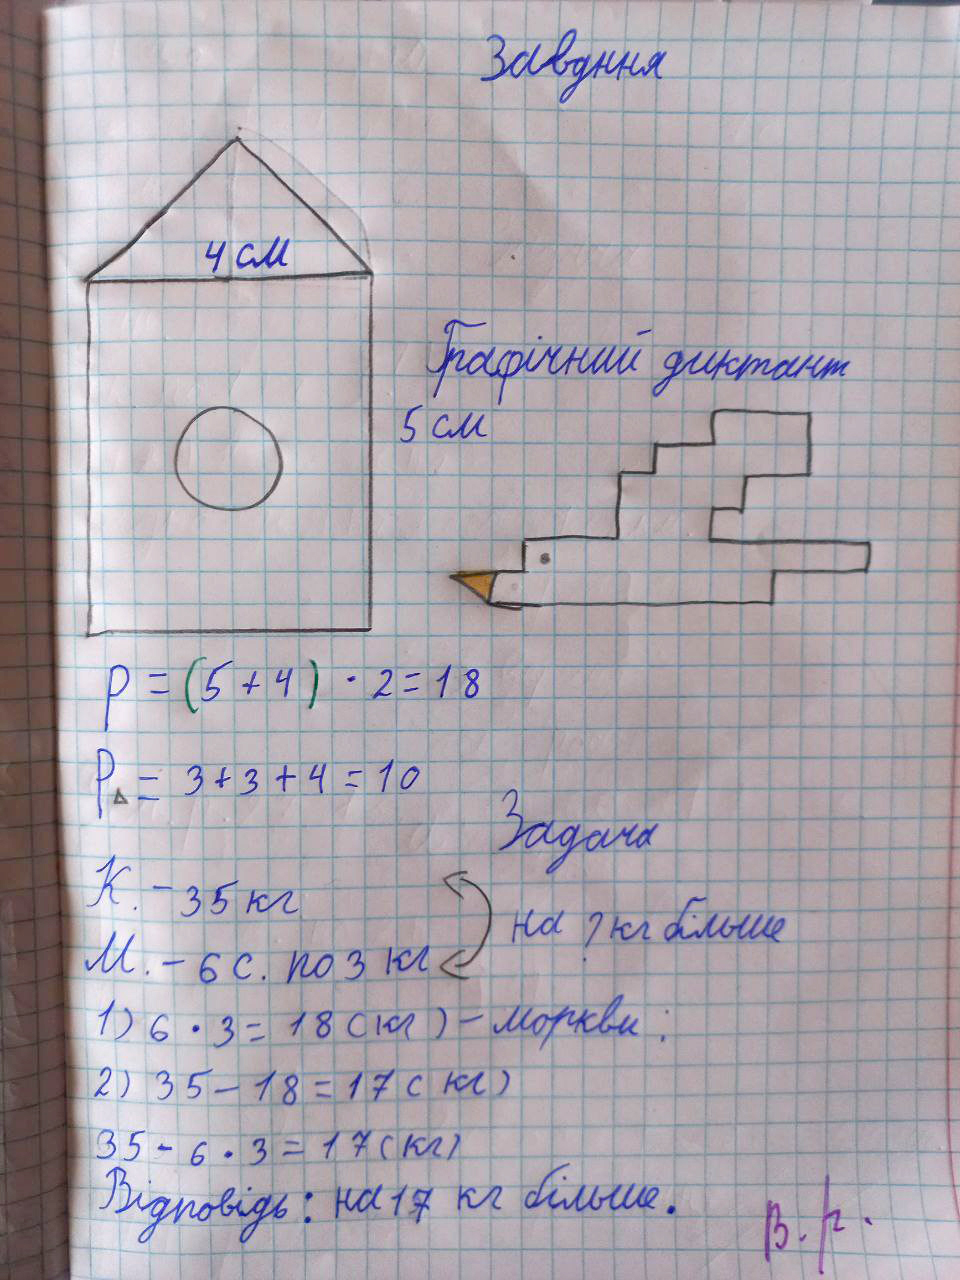 Завдння
4 см
Графічний диктант
5 см
P = (5 + 4) · 2 = 18
P△ = 3 + 3 + 4 = 10
Задача
К. - 35 кг
на ? кг більше
М. - 6 с. по 3 кг
1) 6 · 3 = 18 (кг) - моркви;
2) 35 - 18 = 17 (кг)
35 - 6 · 3 = 17 (кг)
Відповідь: на 17 кг більше.
В. р.